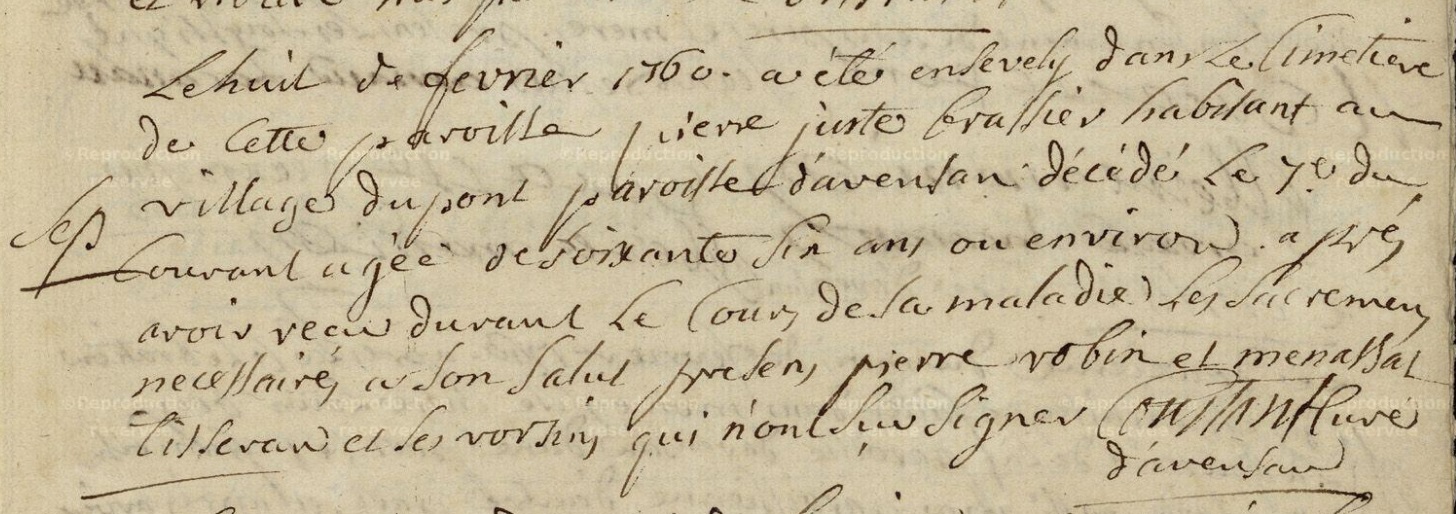 Le huit de fevrier 1760. a été ensevely dans Le Cimetiere
de Cette paroisse pierre juste brassier habitant au
village du pont paroisse d'avensan décédé Le 7e. du
Sep
Courant agéé de soixante six ans ou environ. aprés
avoir recu durant Le Cours de sa maladie Les sacremens
necessaires a son salut presens pierre robin et menassat
tisseran et ses voisins qui n'ont sçu signer Constant Cure
d'avensan
© Reproduction réservée